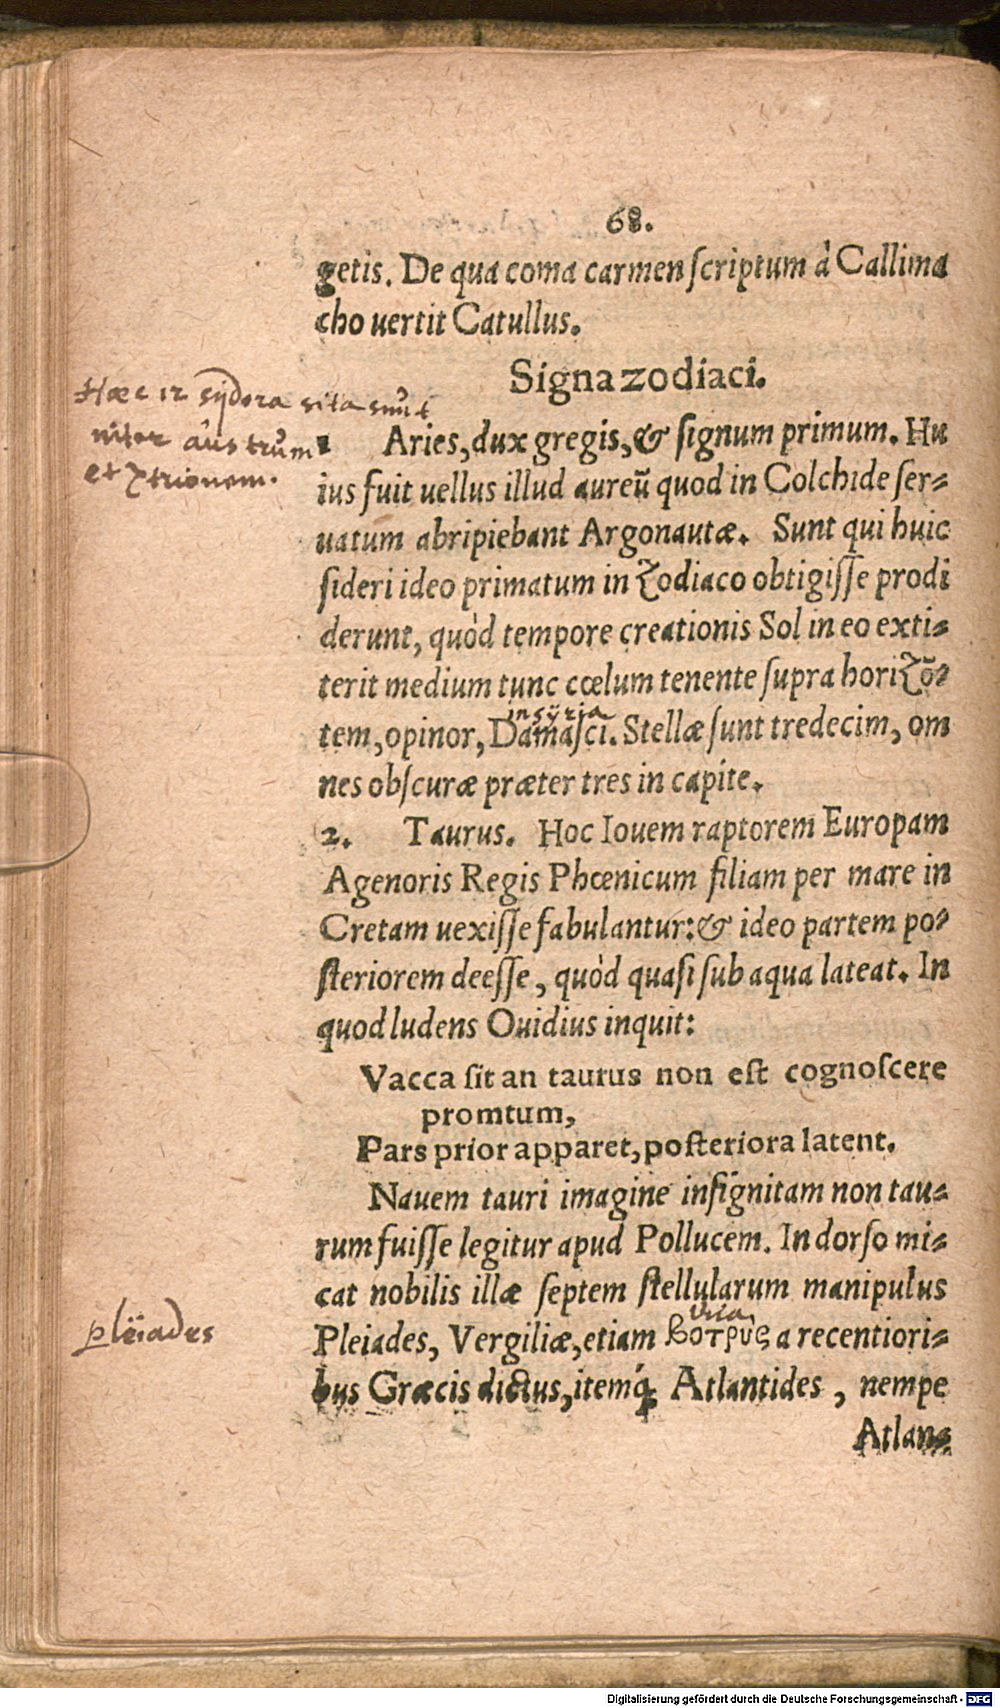 68.
getis. De qua coma carmen scriptum à Callima
cho uertit Catullus.
Signa zodiaci.
Hæc 12 sÿdera sita sunt
inter austrum
et Ptrionem.
1 Aries, dux gregis, & signum primum. Hu
ius fuit uellus illud aureū quod in Colchide ser⸗
uatum abripiebant Argonautæ. Sunt qui huic
sideri ideo primatum in Zodiaco obtigisse prodi
derunt, quòd tempore creationis Sol in eo exti⸗
terit medium tunc cœlum tenente supra horizō⸗
in sÿria
tem, opinor, Damasci. Stellæ sunt tredecim, om
nes obscuræ præter tres in capite.
2. Taurus. Hoc Iouem raptorem Europam
Agenoris Regis Phœnicum filiam per mare in
Cretam uexisse fabulantur: & ideo partem po⸗
steriorem deesse, quòd quasi sub aqua lateat. In
quod ludens Ouidius inquit:
Vacca sit an taurus non est cognoscere
promtum,
Pars prior apparet, posteriora latent.
Nauem tauri imagine insignitam non tau⸗
rum fuisse legitur apud Pollucem. In dorso mi⸗
cat nobilis illæ septem stellularum manipulus
plëiades
Pleiades, Vergiliæ, etiam βοτρὺς a recentiori⸗
bus Græcis dictus, itemq́; Atlantides, nempe
Atlan⸗
Digitalisierung gefördert durch die Deutsche Forschungsgemeinschaft - DFG